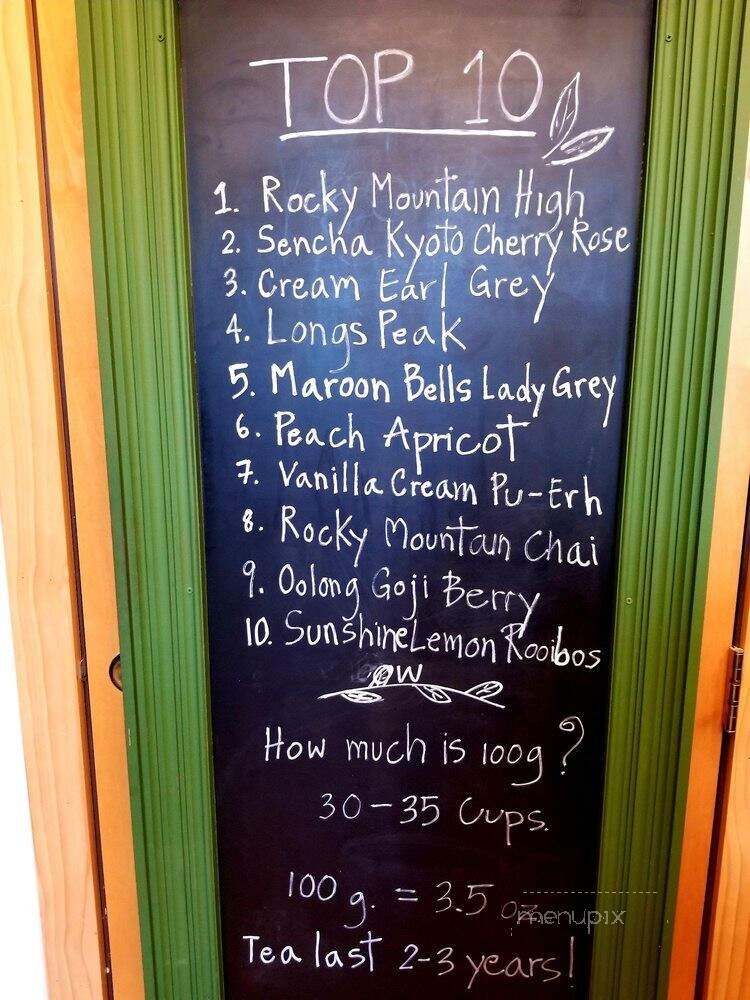 TOP 10
1. Rocky Mountain High
2. Sencha Kyoto Cherry Rose
3. Cream Earl Grey
4. Longs Peak
5. Maroon Bells Lady Grey
6. Peach Apricot
7. Vanilla Cream Pu-Erh
8. Rocky Mountain Chai
9. Oolong Goji Berry
10. Sunshine Lemon Rooibos
How much is 100g?
30-35 Cups.
100 g. = 3.5 oz
menupix
Tea last 2-3 years!